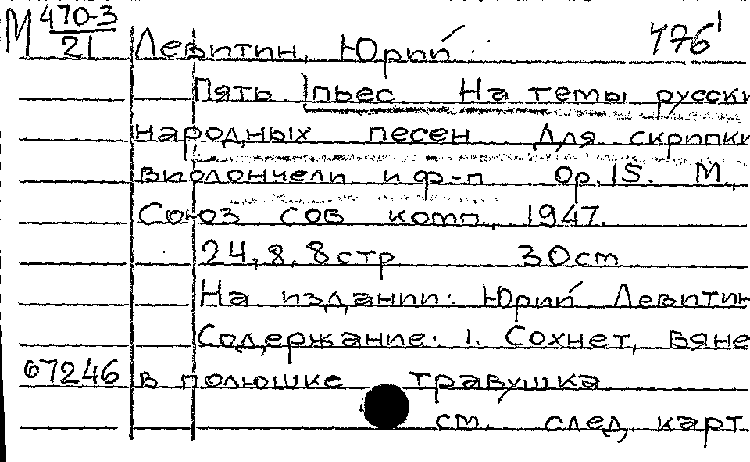 М 470-3
21
Левитин, Юрий
476
Пять пьес На темы русски
народных песен Для скрипки
виолончели и ф-п Ор. 15. М.,
Союз сов комп, 1947.
24, 8, 8 стр 30 cm
На издании: Юрий Левитин
Содержание: 1. Сохнет, вяне
07246 в полюшке травушка
см. след, карт